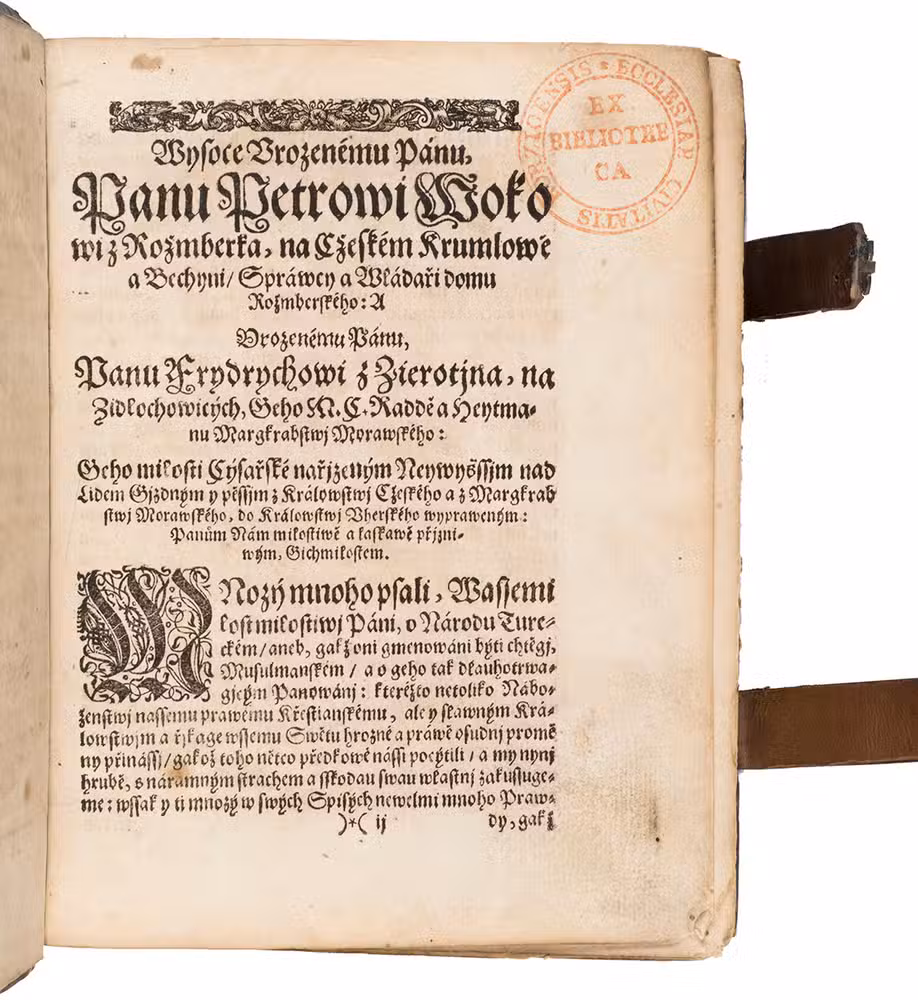 Wysoce Vrozenému Pánu,
Panu Petrowi Woko
wi z Rožmberka, na Cžeském Krumlowě
a Bechyni/ Spráwcy a Wládaři domu
Rožmberského: A
Vrozenému Pánu,
Panu Frydrychowi z Zierotjna, na
Zidlochowicých, Geho M. C. Raddě a Heytma-
nu Margkrabstwj Morawského:
Geho milosti Cýsařské nařjzeným Neywyšssjm nad
Lidem Gjzdným y pěssjm z Králowstwj Cžeského a z Margkrab
stwj Morawského, do Králowstwj Vherského wypraweným:
Panům Nám milostiwě a laskawě přjzni-
wým, Gichmilostem.
MNozý mnoho psali, Wassemi
lost milostiwj Páni, o Národu Ture-
ckém/ aneb, gakž oni gmenowáni býti chtěgj,
Musulmanském/ a o geho tak dlauhotrwa-
gjcým Panowánj: kteréžto netoliko Nábo-
ženstwj nassemu prawému Křestianskému, ale y slawným Krá-
lowstwjm a řjkage wssemu Swětu hrozné a práwě osudnj promě
ny přinássj/ gakož toho něco předkowé nássi pocýtili/ a my nynj
hrubě, s náramným strachem a sskodau swau wlastnj zakussuge-
me: wssak y ti mnozý w swých Spisých newelmi mnoho Praw-
)*( ij
dy, gakž
EX
BIBLIOTHE
CA
ECCLESIAE CIVITATIS